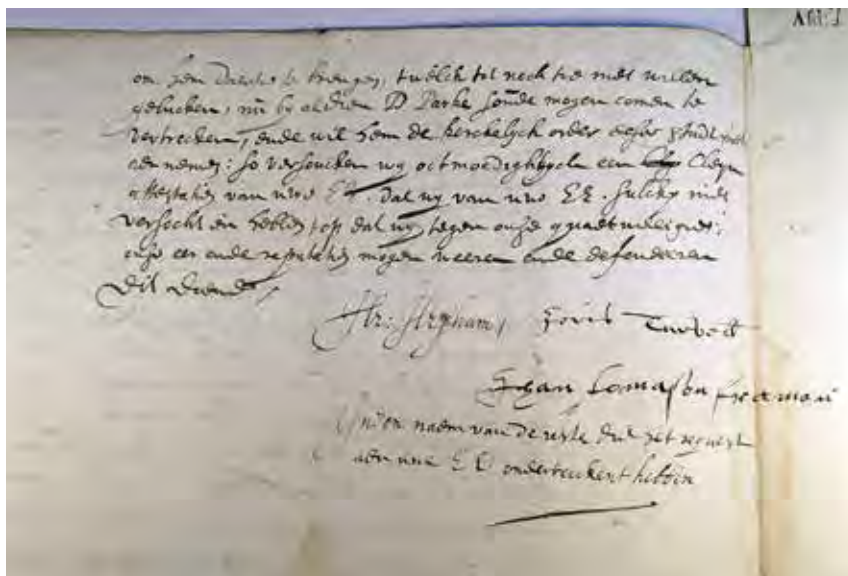 om hem daertoe te brengen, twelck tot noch toe niet willen
gelucken, nu by aldien D Parke soude mogen comen te
vertrecken, ende wil hem de kerckelyck order deser stadt niet
aen nemen: so versoucken wy ootmoedighlyck een cleyn
attestatie van uwe EE. dat wy van uwe EE. sulckx niet
versocht en hebben, op dat wy tegen onse quaetwilligers:
onse eer ende reputatie mogen weeren ende defenderen
Dit doende,
Joris
Jean Tomasson
In den naem van de reste die het request
aen uwe EE onderteeckent hebben